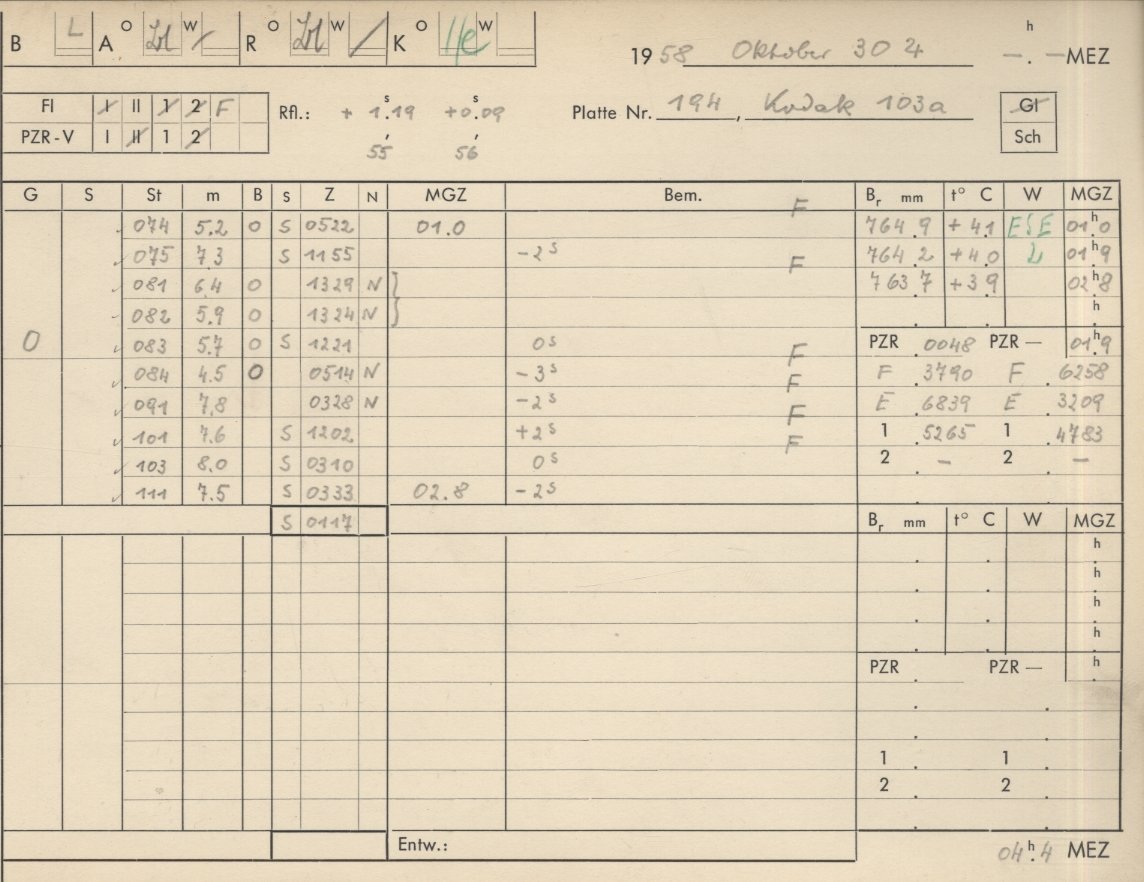 B L A O Zl W / R O Zl W / K O He W
1958 Oktober 30 24 h —.— MEZ
FI I II 1 2 F Rfl.: + 1.19 s +0.09 s Platte Nr. 194, Kodak 103a GI
PZR-V I II 1 2 55 56 Sch
G S St m B S Z N MGZ Bem. Br mm t° C W MGZ
074 5.2 0 S 0522 01.0 F 764.9 +4.1 ESE 01h.0
075 7.3 S 1155 -2s F 764.2 +4.0 2 01h.9
081 6.4 0 1329 N } 763.7 +3.9 02h.8
082 5.9 0 1324 N } h.
0 083 5.7 0 S 1221 0s F PZR .0048 PZR — 01h.9
084 4.5 0 0514 N -3s F F .3790 F .6258
091 7.8 0328 N -2s F E .6839 E .3209
101 7.6 S 1202 +2s F 1 .5265 1 .4783
103 8.0 S 0310 0s 2 — 2 —
111 7.5 S 0333 02.8 -2s
S 0117 Br mm t° C W MGZ
h
h
h
h
PZR . PZR — h
1 . 1 .
2 . 2 .
Entw.: 04h.4 MEZ